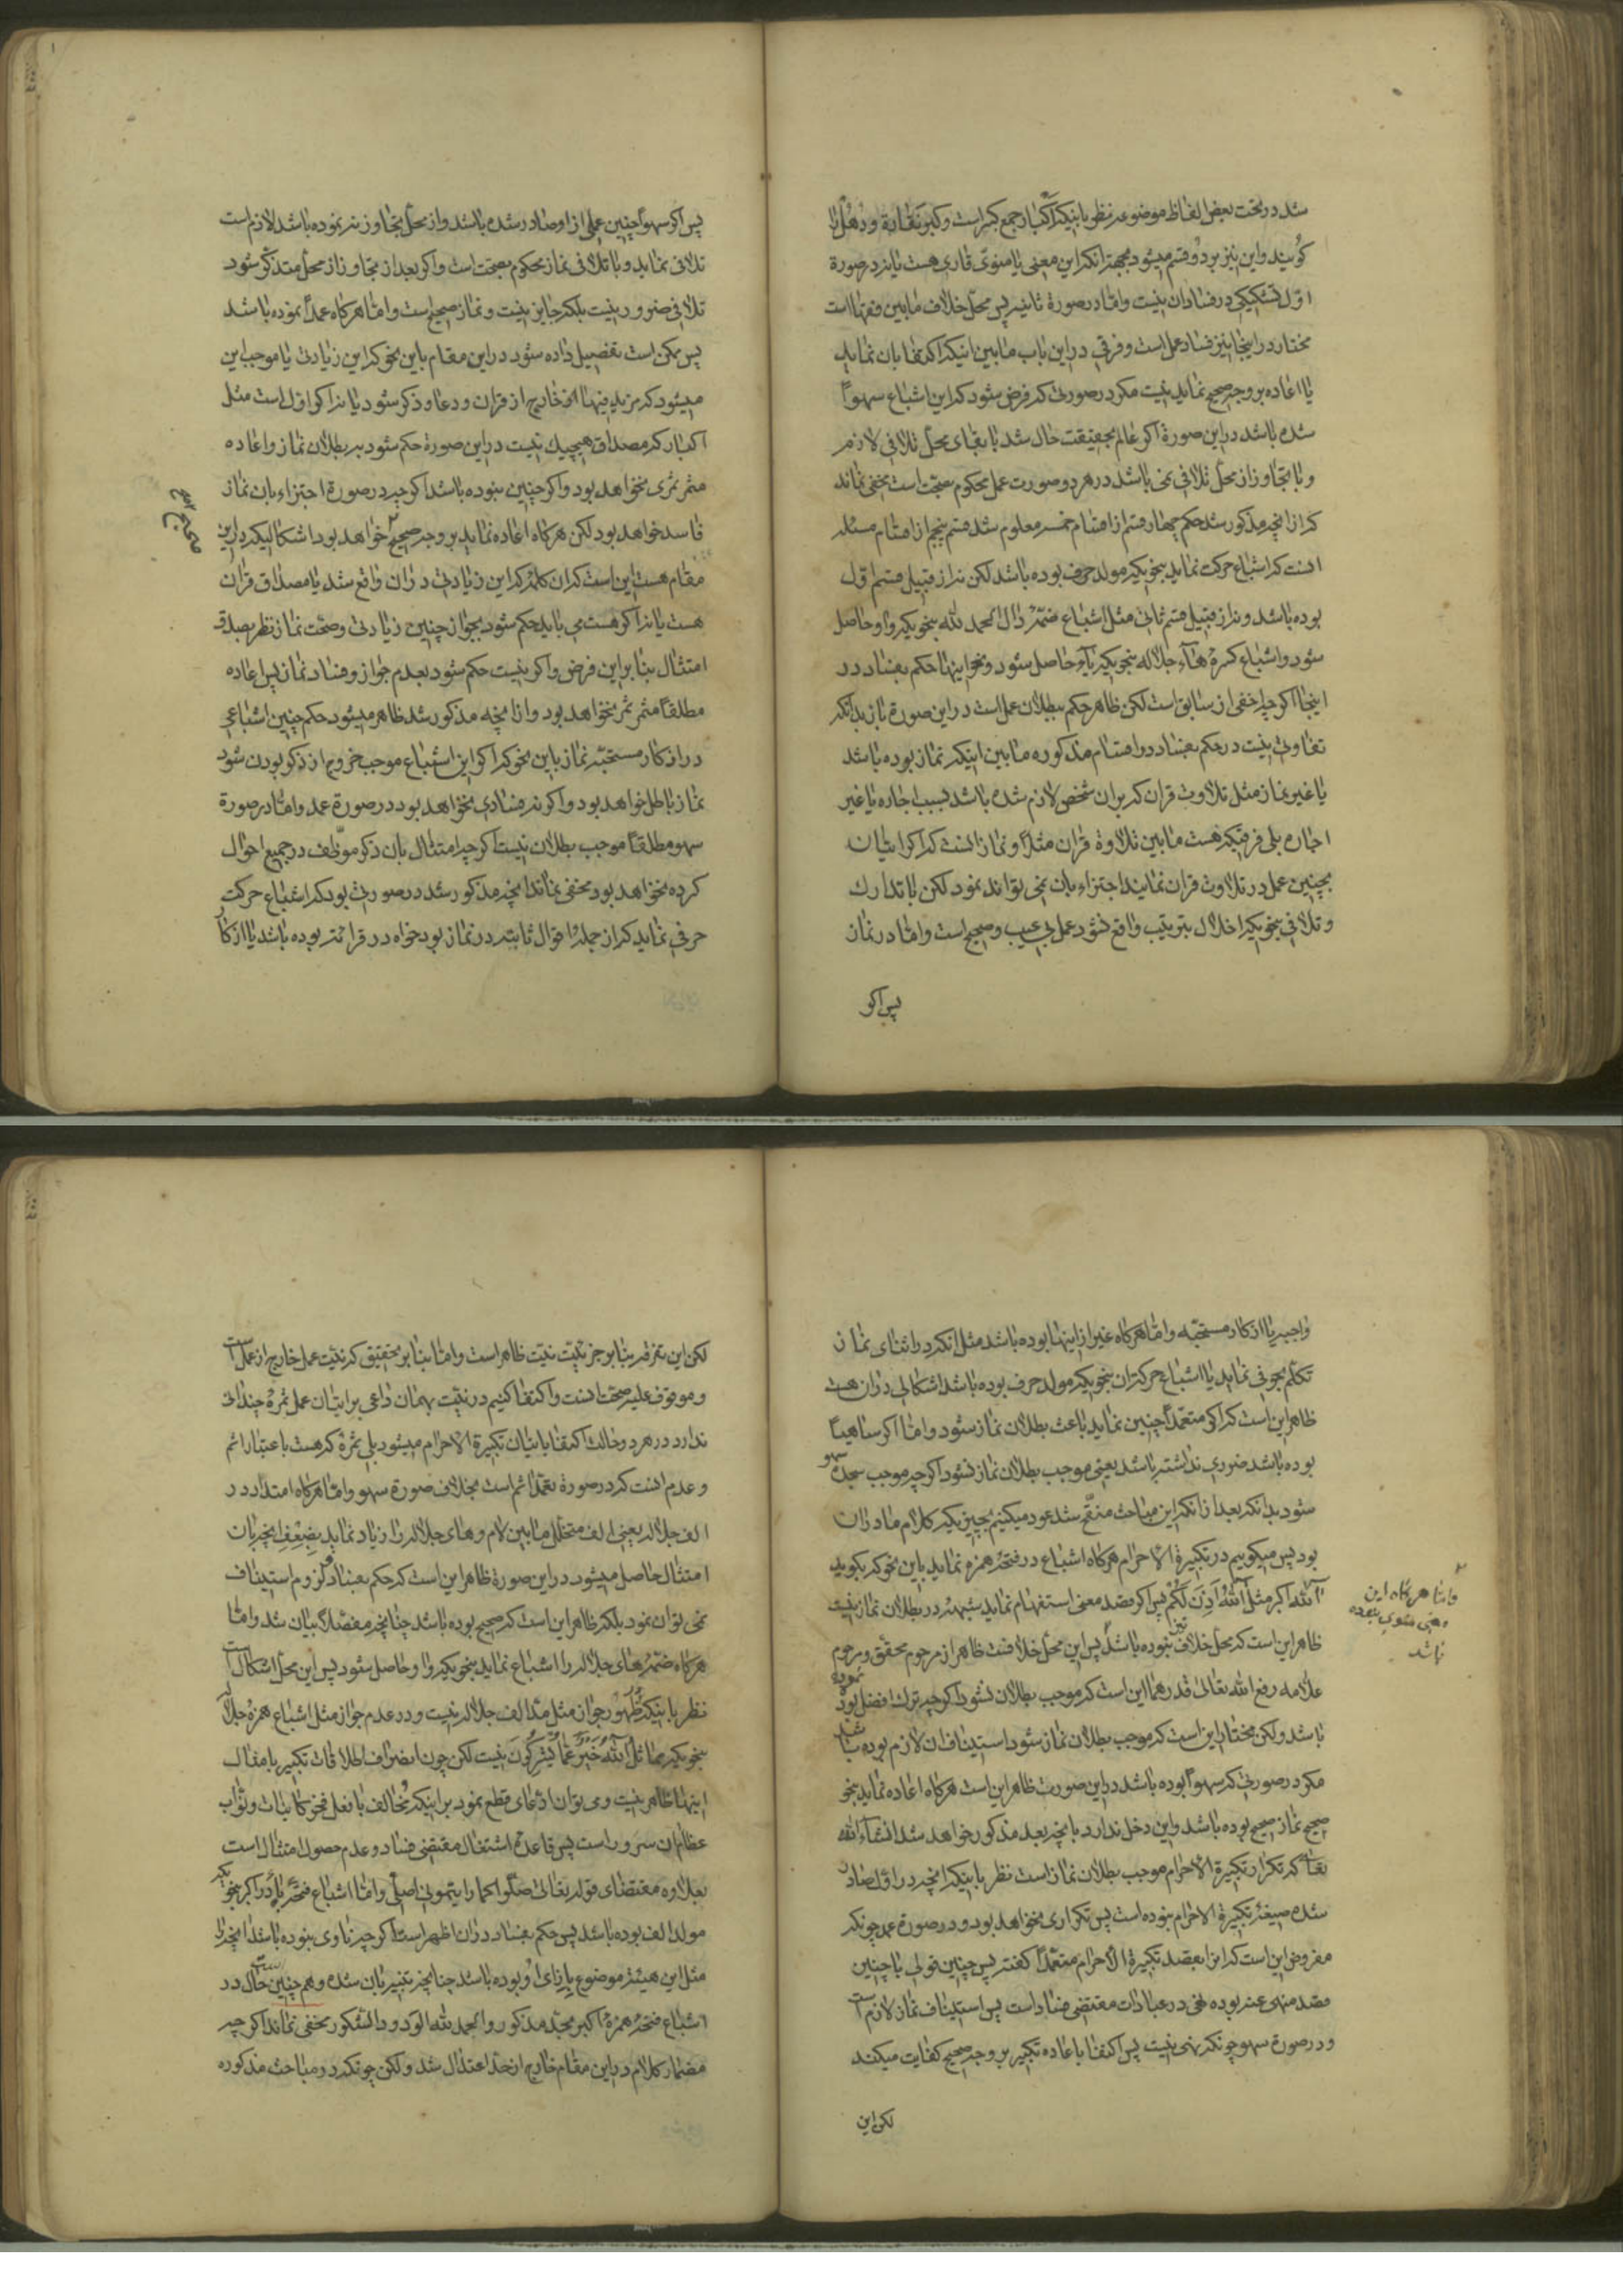 شد در تحت بعض الفاظ موضوعه نظر باینکه اکبار جمع کبر است و کبر نقاره و دهل را
کویند و این نیز بر دو قسم میشود بجهة آنکه این معنی یا منوی قاری هست یا نه در صورة
اول تشکیکی در فساد آن نیست و اما در صورة ثانیه پس محل خلاف مابین فقها است
مختار در اینجا نیز فساد عمل است و فرقی در این باب مابین اینکه اکتفا بان نماید
یا اعاده بر وجه صحیح نماید نیست مکر در صورتی که فرض شود که این اشباع سهواً
شده باشد در این صورة اکر عالم بحقیقت حال شد با بقای محل تلافی لازم
و با تجاوز از محل تلافی نمی باشد در هر دو صورت عمل محکوم بصحت است مخفی نماند
که از آنچه مذکور شد حکم چهار قسم از اقسام خمسه معلوم شد قسم پنجم از اقسام مسئله
انست که اشباع حرکت نماید بنحویکه مولد حرف بوده باشد لکن نه از قبیل قسم اول
بوده باشد و نه از قبیل قسم ثانی مثل اشباع ضمه دال الحمد لله بنحویکه واو حاصل
شود و اشباع کسره هاء جلاله بنحویکه یاء حاصل شود و نحو اینها حکم بفساد در
اینجا اکر چه اخفی از سابق است لکن ظاهر حکم ببطلان عمل است در این صورة باز بدانکه
تفاوتی نیست در حکم بفساد در اقسام مذکوره مابین اینکه نماز بوده باشد
یا غیر نماز مثل تلاوت قران که بر ان شخص لازم شده باشد بسبب اجاره یا غیر
اجاره بلی فرقیکه هست مابین تلاوة قران مثلا و نماز انست که اکر اتیان
بچنین عمل در تلاوت قران نماید اجتزاء بان نمی تواند نمود لکن با تدارک
و تلافی بنحویکه اخلال بترتیب واقع نشود عمل بی عیب و صحیح است و اما در نماز
پس اکر
پس اکر سهواً چنین عملی از او صادر شده باشد و از محل تجاوز نه نموده باشد لازم است
تلافی نماید و با تلافی نماز محکوم بصحت است و اکر بعد از تجاوز از محل متذکر شود
تلافی ضرور نیست بلکه جایز نیست و نماز صحیح است و اما هرکاه عمداً نموده باشد
پس ممکن است تفصیل داده شود در این مقام باین نحو که این زیادتی یا موجب این
میشود که مزید فیها از خارج از قران و دعا و ذکر شود یا نه اکر اول است مثل
اکبار که مصداق هیچیک نیست در این صورة حکم شود به بطلان نماز و اعاده
مثمر ثمری نخواهد بود و اکر چنین نبوده باشد اکر چه در صورة اجتزاء بان نماز
فاسد خواهد بود لکن هرکاه اعاده نماید بر وجه صحیح خواهد بود اشکالیکه در این
مقام هست این است که ان کلمه که این زیادتی در ان واقع شد یا مصداق قران
هست یا نه اکر هست می باید حکم شود بجواز چنین زیادتی و صحت نماز نظر بصدق
امتثال بنا بر این فرض و اکر نیست حکم شود بعدم جواز و فساد نماز پس اعاده
مطلقا مثمر ثمر نخواهد بود و از آنچه مذکور شد ظاهر میشود حکم چنین اشباعی
در اذکار مستحبه نماز باین نحو که اکر این اشباع موجب خروج از ذکر بودن شود
نماز باطل خواهد بود و اکر نه فسادی نخواهد بود در صورة عمد و اما در صورة
سهو مطلقاً موجب بطلان نیست اکر چه امتثال بان ذکر موظف در جمیع احوال
کرده نخواهد بود مخفی نماند آنچه مذکور شد در صورتی بود که اشباع حرکت
حرفی نماید که از جمله اقوال ثابته در نماز بود خواه در قرائه بوده باشد یا اذکار
واجبه یا اذکار مستحبه و اما هرکاه غیر از اینها بوده باشد مثل انکه در اثنای نماز
تکلم بحرفی نماید یا اشباع حرکة ان بنحویکه مولد حرف بوده باشد اشکالی در ان هست
ظاهر این است که اکر متعمداً چنین نماید باعث بطلان نماز شود و اما اکر ساهیاً
بوده باشد ضرری نداشته باشد یعنی موجب بطلان نماز نشود اکر چه موجب سجده سهو
شود بدانکه بعد از انکه این مباحث منقح شد عود میکنیم بچیزیکه کلام ما در ان
بود پس میکوییم در تکبیرة الاحرام هرکاه اشباع در فتحه همزه نماید باین نحو که بکوید
آلله اکبر مثل آلله اذن لکم پس اکر قصد معنی استفهام نماید شبهه در بطلان نماز نیست
و اما هرکاه این معنی منوی نبوده باشد
ظاهر این است که محل خلاف نیز نبوده باشد پس این محل خلاف است ظاهر از مرحوم محقق و مرحوم
علامه رفع الله تعالی قدرهما این است که موجب بطلان نشود اکر چه ترک افضل بوده
باشد ولکن مختار این است که موجب بطلان نماز شود استیناف ان لازم بوده باشد
مکر در صورتی که سهواً بوده باشد در این صورت ظاهر این است هرکاه اعاده نماید بنحو
صحیح نماز صحیح بوده باشد و این دخل ندارد بآنچه بعد مذکور خواهد شد انشاء الله
تعالی که تکرار تکبیرة الاحرام موجب بطلان نماز است نظر باینکه آنچه در اول صادر
شده صیغه تکبیرة الاحرام نبوده است پس تکراری نخواهد بود و در صورة عمد چونکه
مفروض این است که انرا بقصد تکبیرة الاحرام متعمداً کفته پس چنین قولی با چنین
قصد منهی عنه بوده نهی در عبادات مقتضی فساد است پس استیناف نماز لازم است
و در صورة سهو چونکه نهی نیست پس اکتفا باعاده تکبیر بر وجه صحیح کفایت میکند
لکن این
لکن این تفرقه بنا بر جزئیت نیت ظاهر است و اما بنا بر تحقیق که نیت عمل خارج از عمل است
و موقوف علیه صحت انست و اکتفا کنیم در نیت بهمان داعی بر اتیان عمل ثمره چندانی
ندارد در هر دو حالت اکتفا باتیان تکبیرة الاحرام میشود بلی ثمرة که هست باعتبار اثم
و عدم انست که در صورة تعمد اثم است بخلاف صورة سهو و اما هرکاه امتداد در
الف جلاله یعنی الف متخلل مابین لام و های جلاله را زیاد نماید بضعف آنچه بان
امتثال حاصل میشود در این صورة ظاهر این است که حکم بفساد و لزوم استیناف
نمی توان نمود بلکه ظاهر این است که صحیح بوده باشد چنانچه مفصلاً بیان شد و اما
هرکاه ضمه های جلاله را اشباع نماید بنحویکه واو حاصل شود پس این محل اشکال است
نظر باینکه ظهور جواز مثل مد الف جلاله نیست و در عدم جواز مثل اشباع همزه جلاله
بنحویکه مماثل آلله خیر عما یشرکون نیست لکن چون انصراف اطلاقات تکبیر بامثال
اینها ظاهر نیست و می توان ادعای قطع نمود بر اینکه مخالف با فعل فخر کاینات و نواب
عظام ان سرور است پس قاعدة اشتغال مقتضی فساد و عدم حصول امتثال است
بعلاوه مقتضای قوله تعالی صلوا کما رایتمونی اصلی و اما اشباع فتحه باء در اکبر بنحویکه
مولد الف بوده باشد پس حکم بفساد در ان اظهر است اکر چه ناوی نبوده باشد آنچه را
مثل این هیئة موضوع بازای او بوده باشد چنانچه تنبیه بان شده و هم چنین است حال در
اشباع فتحه همزه اکبر بحد مذکور و الحمد لله الودود الشکور مخفی نماند اکر چه
مضمار کلام در این مقام خارج از حد اعتدال شد ولکن چونکه در مباحث مذکوره